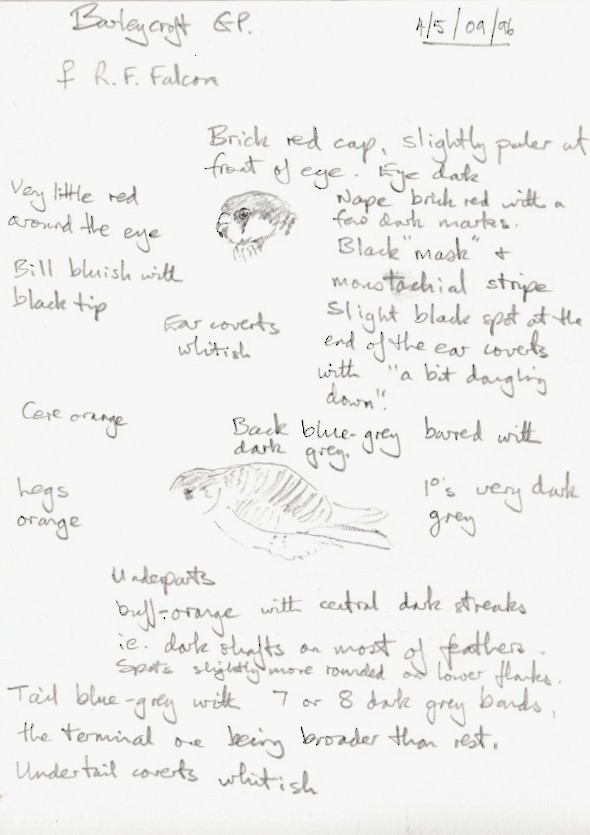 Barleycroft G.P.
4/5/09/96
♀ R.F. Falcon
Brick red cap, slightly paler at
front of eye. Eye dark
Very little red
around the eye
Nape brick red with a
few dark marks.
Black "mask" +
moustachial stripe
Bill bluish with
black tip
Slight black spot at the
end of the ear coverts
with "a bit dangling
down".
Ear coverts
whitish
Cere orange
Back blue-grey barred with
dark grey.
Legs
orange
1°'s very dark
grey
Underparts
buff-orange with central dark streaks
ie. dark shafts on most of feathers.
Spots slightly more rounded on lower flanks.
Tail blue-grey with 7 or 8 dark grey bands,
the terminal one being broader than rest.
Undertail coverts whitish